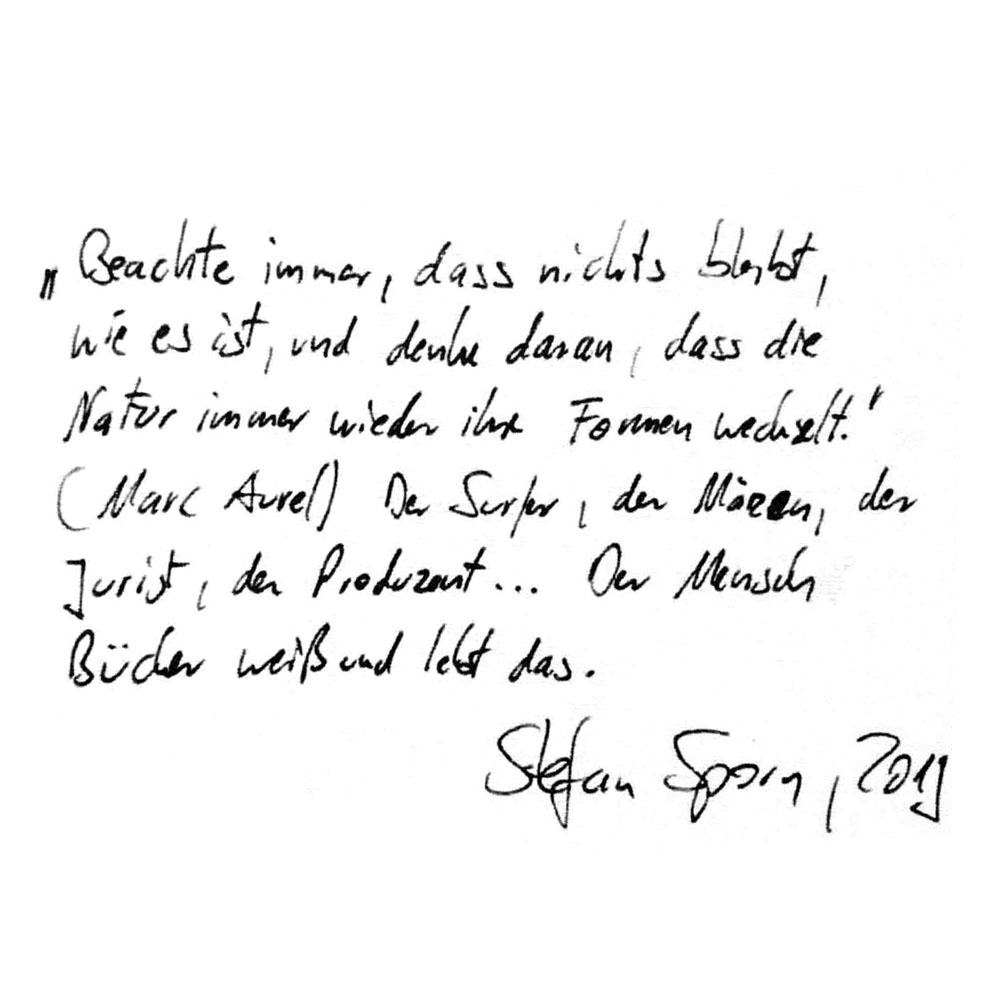 „Beachte immer, dass nichts bleibt,
wie es ist, und denke daran, dass die
Natur immer wieder ihre Formen wechselt."
(Marc Aurel) Der Surfer, der Mäzen, der
Jurist, der Produzent... Der Mensch
Bücher weiß und lebt das.
Stefan Sporn, 2019